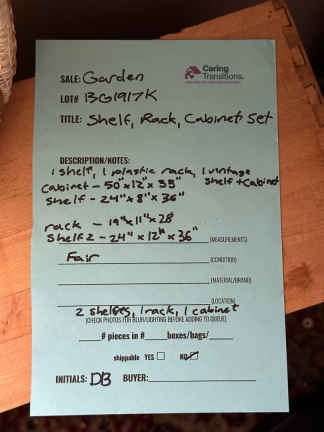 SALE: Garden
Caring
Transitions.
LOT# BG1917K
TITLE: Shelf, Rack, Cabinet Set
DESCRIPTION/NOTES:
1 shelf, 1 plastic rack, 1 vintage
shelf + Cabinet
Cabinet - 50"x12"x 55"
Shelf - 24"x 8"x 36"
rack - 19"x11"x 28"
Shelf 2 - 24"x 12"x 36"
(MEASUREMENTS)
Fair
(CONDITION)
(MATERIAL/BRAND)
(LOCATION)
2 shelfes, 1 rack, 1 cabinet
(CHECK PHOTOS FOR BLUR/LIGHTING BEFORE ADDING TO QUEUE)
# pieces in # boxes/bags/
shippable YES NO
INITIALS: DB BUYER: